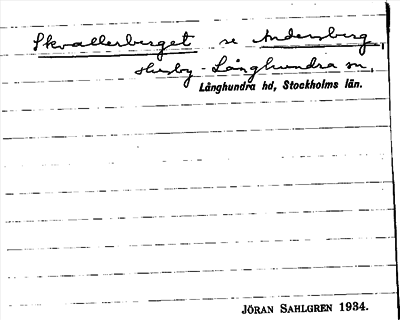 Skvallerberget se Andersberg,
Husby-Långhundra sn,
Långhundra hd, Stockholms län.
JÖRAN SAHLGREN 1934.